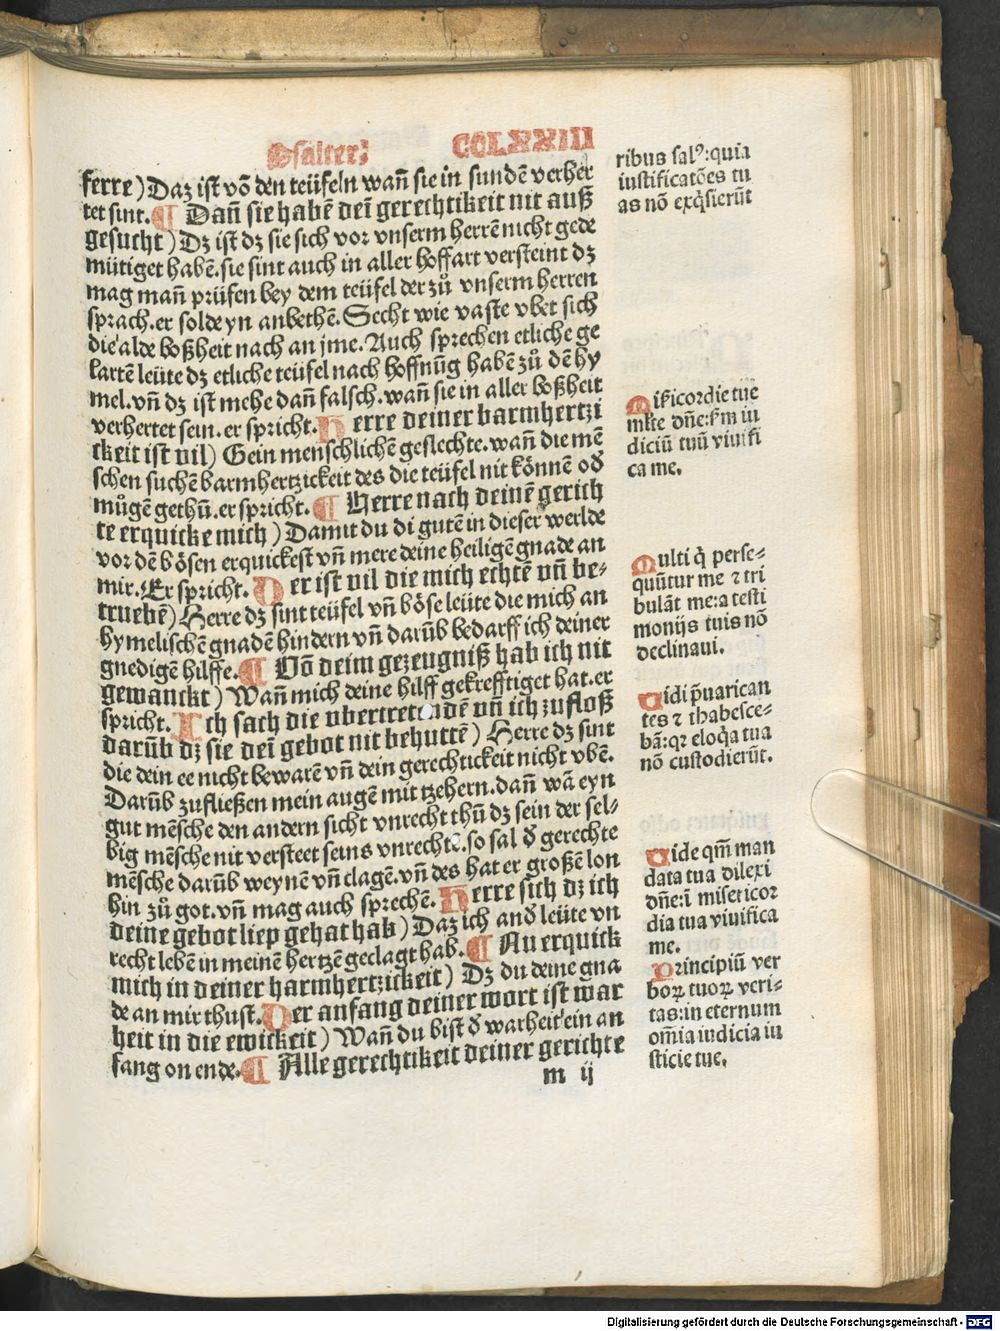 Psalter; CCLXXIII
ferre) Daz ist vō den teüfeln wañ sie in sundē verher
tet sint. ¶ Dañ sie habē dei̅ gerechtikeit nit auß
gesucht) Dz ist dz sie sich vor vnserm herrē nicht gede
mütiget habē. sie sint auch in aller hoffart versteint dz
mag mañ prüfen bey dem teüfel der zuͦ vnserm herren
sprach. er solde yn anbethē. Secht wie vaste vbet sich
die alde boßheit nach an jme. Auch sprechen etliche ge
lartē leüte dz etliche teüfel nach hoffnūg habē zuͦ dē hy
mel. vñ dz ist mehe dañ falsch. wañ sie in aller boßheit
verhertet sein. er spricht. Herre deiner barmhertzi
ckeit ist vil) Gein menschlichē geslechte. wañ die mē
schen suchē barmhertzickeit des die teüfel nit koͤnnē oď
muͦgē gethū. er spricht. ¶ Herre nach deinē gerich
te erquicke mich) Damit du di gutē in dieser werlde
vor dē boͤsen erquickest vñ mere deine heiligē gnade an
mir. Er spricht. Der ist vil die mich echtē vñ be-
truebē) Herre dz sint teüfel vñ boͤse leüte die mich an
hymelischē gnadē hindern vñ darūb bedarff ich deiner
gnedigē hilffe. ¶ Vō deim gezeugniß hab ich nit
gewanckt) Wañ mich deine hilff gekrefftiget hat. er
spricht. Ich sach die vbertretendē vñ ich zufloß
darūb dz sie dei̅ gebot nit behuttē) Herre dz sint
die dein ee nicht bewarē vñ dein gerechtickeit nicht vbē.
Darūb zufließen mein augē mit tzehern. dañ wā eyn
gut mēsche den andern sicht vnrecht thū dz sein der sel-
big mēsche nit versteet seins vnrechtē. so sal ď gerechte
mēsche darūb weynē vñ clagē. vñ des hat er großē lon
hin zuͦ got. vñ mag auch sprechē. Herre sich dz ich
deine gebot liep gehat hab) Daz ich anď leüte vn
recht lebē in meinē hertzē geclagt hab. ¶ Nu erquick
mich in deiner barmhertzickeit) Dz du deine gna
de an mir thust. Der anfang deiner wort ist war
heit in die ewickeit) Wañ du bist ď warheit ein an
fang on ende. ¶ Alle gerechtikeit deiner gerichte
m ij
ribus salꝰ: quia
iustificatōes tu
as nō exq̇sierūt
Miẜicordie tue
mlte dñe: ẜm iu
diciū tuū viuifi
ca me.
Multi q̇ perse-
quūtur me ⁊ tri
bulāt me: a testi
monijs tuis nō
declinaui.
Uidi p̄uarican
tes ⁊ thabesce-
bā: qꝛ eloq̇a tua
nō custodierūt.
Uide qm̄ man
data tua dilexi
dñe: ī misericor
dia tua viuifica
me.
Principiū ver
boꝝ tuoꝝ veri-
tas: in eternum
om̄ia iudicia iu
sticie tue.
Digitalisierung gefördert durch die Deutsche Forschungsgemeinschaft - DFG